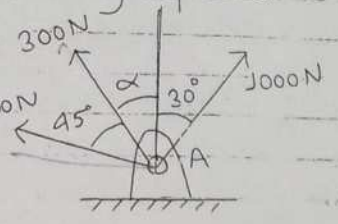 300N
α
30°
1000N
45°
A